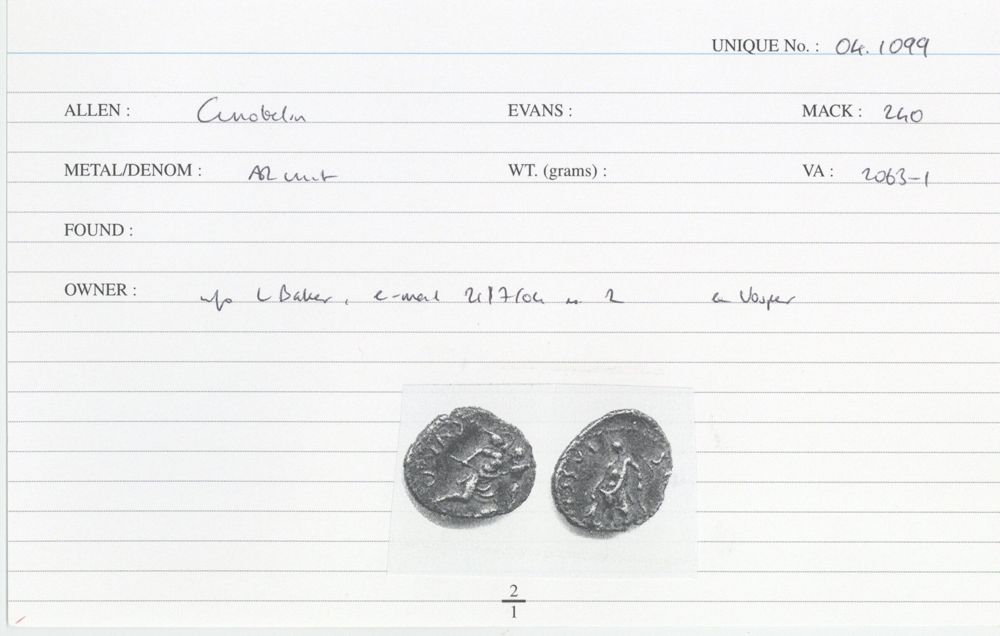 UNIQUE No. : 04.1099
ALLEN : Cunobelin EVANS : MACK : 240
METAL/DENOM : AR unit WT. (grams) : VA : 2063-1
FOUND :
OWNER : L Baker, e-mail 21/7/04 2 Vosper
2
1